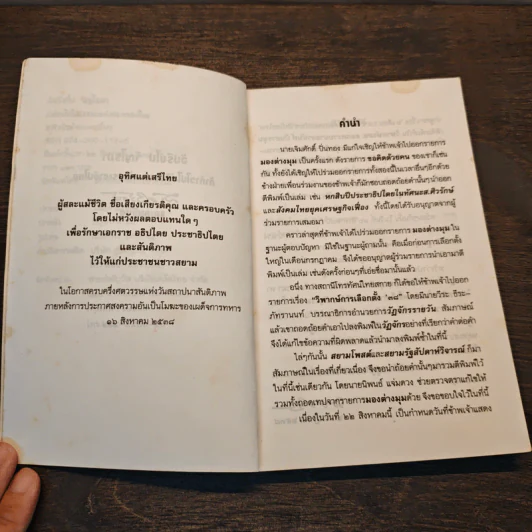 อุทิศแด่เสรีไทย
ผู้สละแม้ชีวิต ชื่อเสียงเกียรติคุณ และครอบครัว
โดยไม่หวังผลตอบแทนใด ๆ
เพื่อรักษาเอกราช อธิปไตย ประชาธิปไตย
และสันติภาพ
ไว้ให้แก่ประชาชนชาวสยาม
ในโอกาสครบครึ่งศตวรรษแห่งวันสถาปนาสันติภาพ
ภายหลังการประกาศสงครามอันเป็นโมฆะของเผด็จการทหาร
๑๖ สิงหาคม ๒๕๓๘
คำนำ
นายเจิมศักดิ์ ปิ่นทอง มีแก่ใจเชิญให้ข้าพเจ้าไปออกรายการ
มองต่างมุม เป็นครั้งแรก ดังรายการ ขอคิดด้วยคน ของเขาก็เช่น
กัน ทั้งยังได้เชิญให้ไปร่วมออกรายการทั้งสองนี้ในเวลาอื่นๆอีกด้วย
ข้างฝ่ายเพื่อนร่วมงานของข้าพเจ้าก็มักชอบถอดถ้อยคำนั้นๆนำออก
ตีพิมพ์เป็นเล่ม เช่น ทศสิบปีประชาธิปไตยในทัศนะส.ศิวรักษ์
และสังคมไทยยุคเศรษฐกิจเฟื่อง ทั้งนี้โดยได้รับอนุญาตจากผู้
ร่วมรายการเสมอมา
คราวล่าสุดที่ข้าพเจ้าได้ไปร่วมออกรายการ มองต่างมุม ใน
ฐานะผู้ตอบปัญหา มิใช่ในฐานะผู้ถามนั้น คือเมื่อก่อนการเลือกตั้ง
ใหญ่ในเดือนกรกฎาคม จึงได้ขออนุญาตผู้ร่วมรายการนำเอามาตี
พิมพ์เป็นเล่ม เช่นดังครั้งก่อนๆที่เอ่ยชื่อมานั้นแล้ว
อนึ่ง ทางสถานีโทรทัศน์ไทยสกาย ก็ได้ขอให้ข้าพเจ้าไปออก
รายการเรื่อง "วิพากษ์การเลือกตั้ง '๓๘" โดยมีนายวีระ ธีระ-
ภัทรานนท์ บรรณาธิการอำนวยการวัฏจักรรายวัน สัมภาษณ์
แล้วเขาถอดถ้อยคำเอาไปลงพิมพ์ในวัฏจักรอย่างที่เรียกว่าคำต่อคำ
จึงได้แก้ไขข้อความที่ผิดพลาดแล้วนำมาลงพิมพ์ซ้ำในที่นี้ด้วย
ไล่ๆกันนั้น สยามโพสต์และสยามรัฐสัปดาห์วิจารณ์ ก็มา
สัมภาษณ์ในเรื่องที่เกี่ยวเนื่อง จึงขอนำถ้อยคำนั้นๆมารวมตีพิมพ์ไว้
ในที่นี้เช่นเดียวกัน โดยนายนิพนธ์ แจ่มดวง ช่วยตรวจตราแก้ไขให้
รวมทั้งถอดเทปจากรายการมองต่างมุมด้วย จึงขอขอบใจไว้ในที่นี้
เนื่องในวันที่ ๒๒ สิงหาคมนี้ เป็นกำหนดวันที่ข้าพเจ้าแสดง